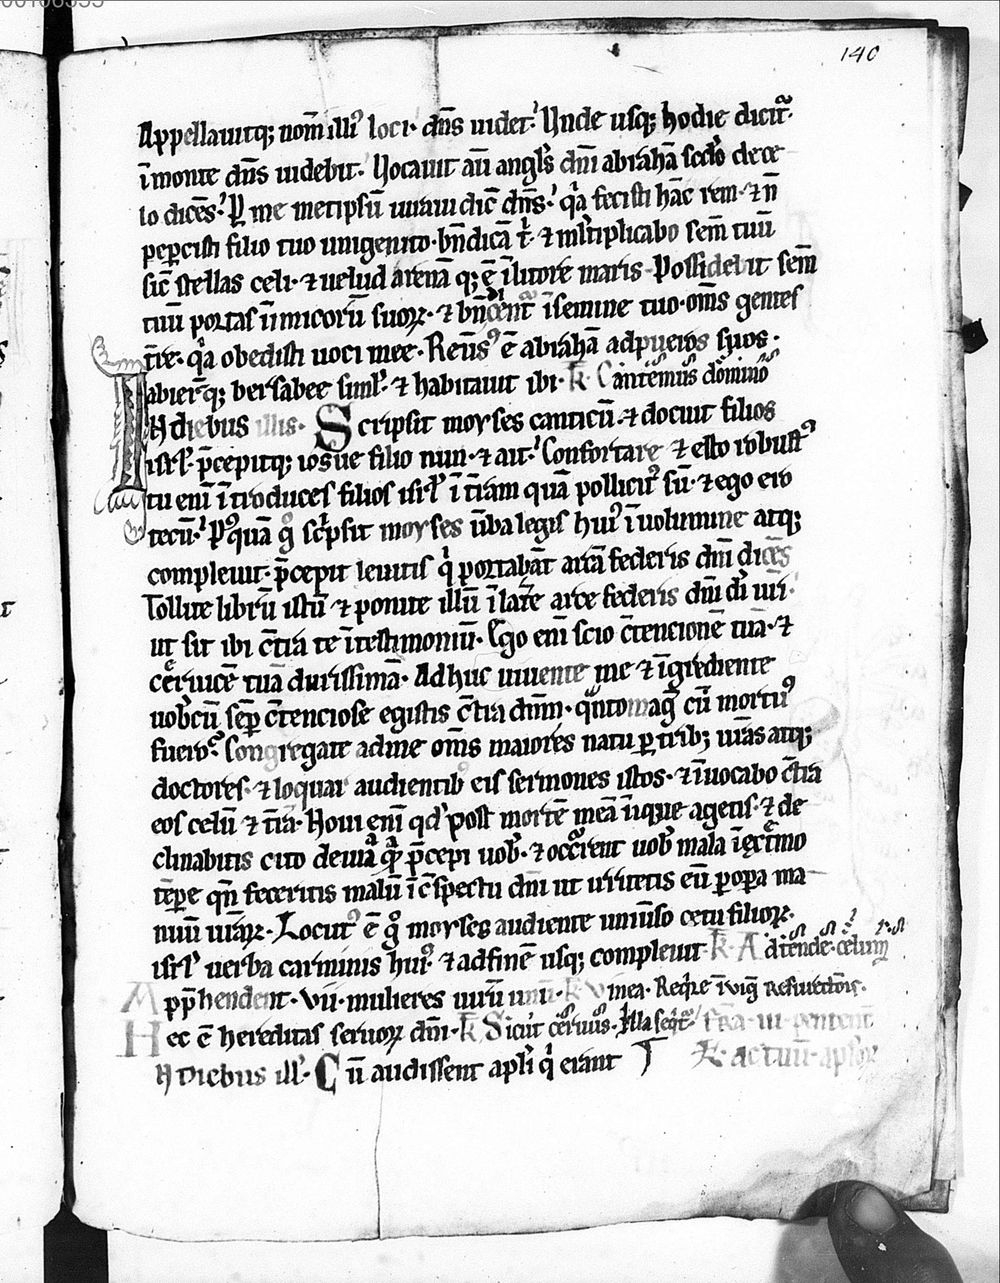 140
Appellauitq; nom̄ illiꝰ loci· dn̄s uidet· Unde usq; hodie dicit᷑·
ī monte dn̄s uidebit· Uocauit aū angl̄s dn̄i abrahā scd̄o de ce
lo dicēs· ꝑ me metipsū iuraui dic̄ dn̄s· qͣ fecisti hāc rem· ⁊ n̄
peꝑcisti filio tuo unigenito· bn̄dicā t̄· ⁊ ml̄tiplicabo sem̄ tuū
sic̄ stellas celi· ⁊ uelud arenā q; ē ī litore maris· Possidebit sem̄
tuū portas inimicorū suoꝝ· ⁊ bn̄dicent᷑ ī semine tuo· om̄s gentes
t̄re· qͣ obedisti uoci mee· Reūsꝰ ē abrahā ad pueros suos·
abierūtq; bersabee siml̄· ⁊ habitauit ibi· k̄ Cantemus domino
In diebus illis· Scripsit moyses canticū· ⁊ docuit filios
isrl̄· p̄cepitq; iosue filio nun· ⁊ ait· Confortare ⁊ esto robustꝰ
tu eni ī troduces filios isrl̄ ī t̄ram quā pollicitꝰ sū· ⁊ ego ero
tecū· Pꝰquā gͦ sc̄psit moyses ūba legis huiꝰ ī uolumine atq;
compleuit· p̄cepit leuitis qͥ portabāt arcā federis dn̄i dicēs
Tollite librū istū ⁊ ponite illū ī late᷑ arce federis dn̄i dī ur̄i·
ut sit ibi c̄tra te ī testimoniū· Ego eni scio c̄tencionē tuā· ⁊
ceruicē tuā durissimā· Adhuc uiuente me ⁊ īgrediente
uobcū semꝑ c̄tenciose egistis c̄tra dn̄m· qͣnto magͥ cū mortuꝰ
fuero· Congregate ad me om̄s maiores natu ꝑ trib; ur̄as atq;
doctores· ⁊ loquar audientib eis sermones istos· ⁊ īuocabo c̄tra
eos celū ⁊ t̄rā· Noui eni qd̄ post mortē meā inique agetis· ⁊ de
clinabitis cito de uia quā p̄cepi uob̄· ⁊ occ̄rent uob̄ mala ī ext̄mo
tēꝑe qn̄ feceritis malū ī c̄spectu dn̄i ut irritetis eū ꝑ oꝑa ma
nuū ur̄aꝝ· Locutꝰ ē gͦ moyses audiente uniūso cetu filioꝝ
isrl̄ uerba carminis huiꝰ· ⁊ ad finē usq; compleuit· k̄· Adtende celum
Apphendent· vii· mulieres uirū unū· k̄ Vinea· Reqͥre ī uigͥ
Hec ē hereditas seruoꝝ dn̄i· k̄ Sicut ceruus·
N diebus ill̄· Cū audissent apl̄i qͥ erant